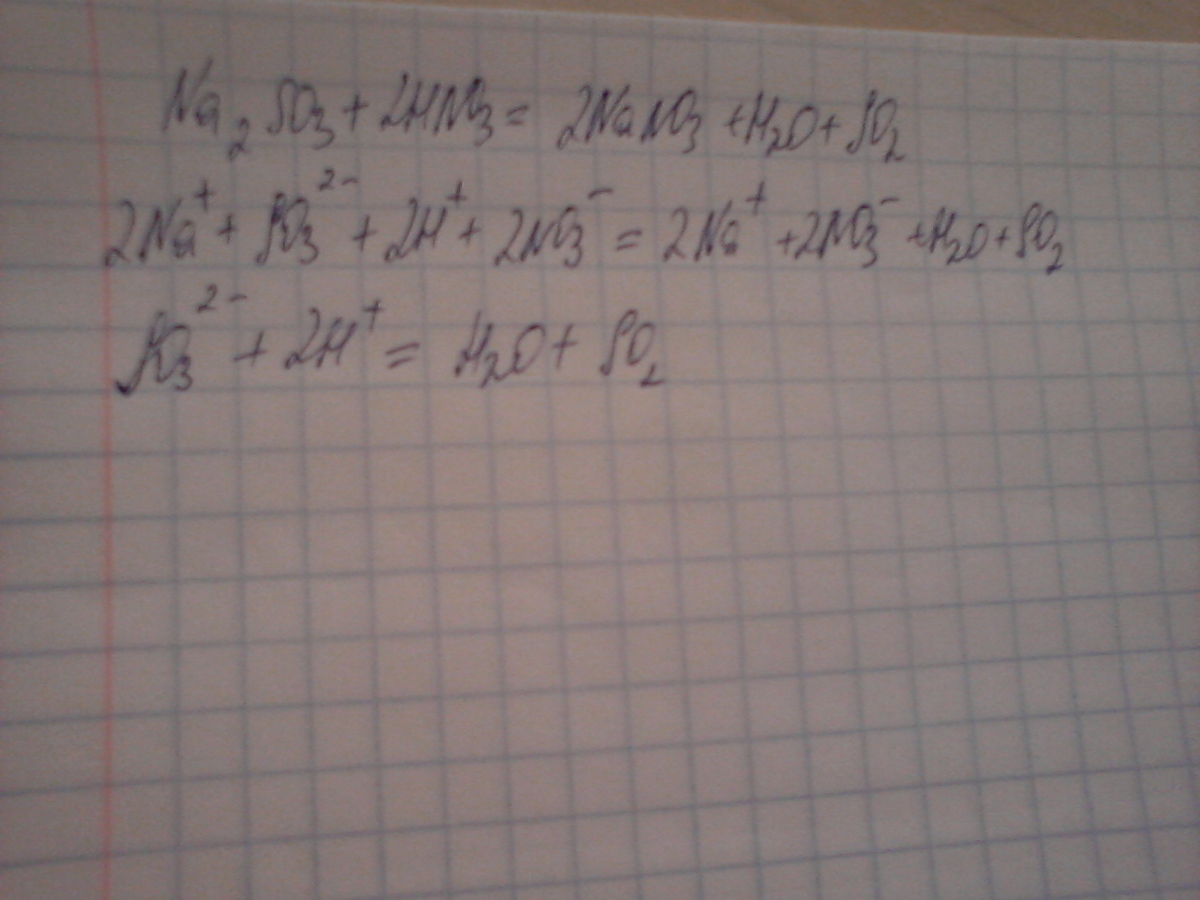 Na₂SO₃ + 2HNO₃ = 2NaNO₃ + H₂O + SO₂
2Na⁺ + SO₃²⁻ + 2H⁺ + 2NO₃⁻ = 2Na⁺ + 2NO₃⁻ + H₂O + SO₂
SO₃²⁻ + 2H⁺ = H₂O + SO₂